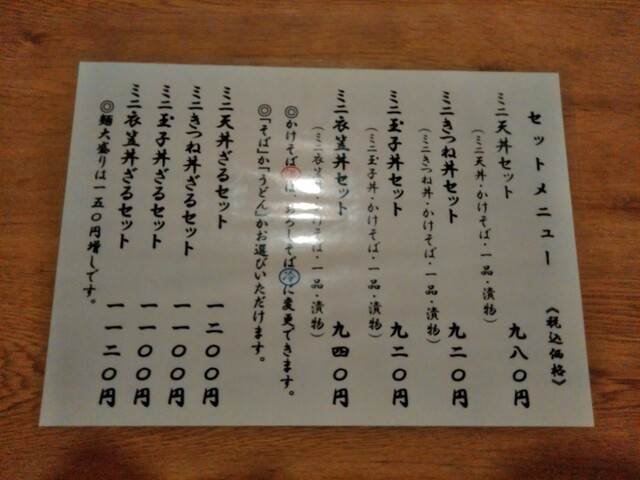 セットメニュー 《税込価格》
ミニ天丼セット 九八〇円
(ミニ天丼・かけそば・一品・漬物)
ミニきつね丼セット 九二〇円
(ミニきつね丼・かけそば・一品・漬物)
ミニ玉子丼セット 九二〇円
(ミニ玉子丼・かけそば・一品・漬物)
ミニ衣笠丼セット 九四〇円
(ミニ衣笠丼・かけそば・一品・漬物)
◎かけそば は、おろしそば冷に変更できます。
◎「そば」か「うどん」かお選びいただけます。
ミニ天丼ざるセット 一二〇〇円
ミニきつね丼ざるセット 一一〇〇円
ミニ玉子丼ざるセット 一一〇〇円
ミニ衣笠丼ざるセット 一一二〇円
◎麺大盛りは一五〇円増しです。